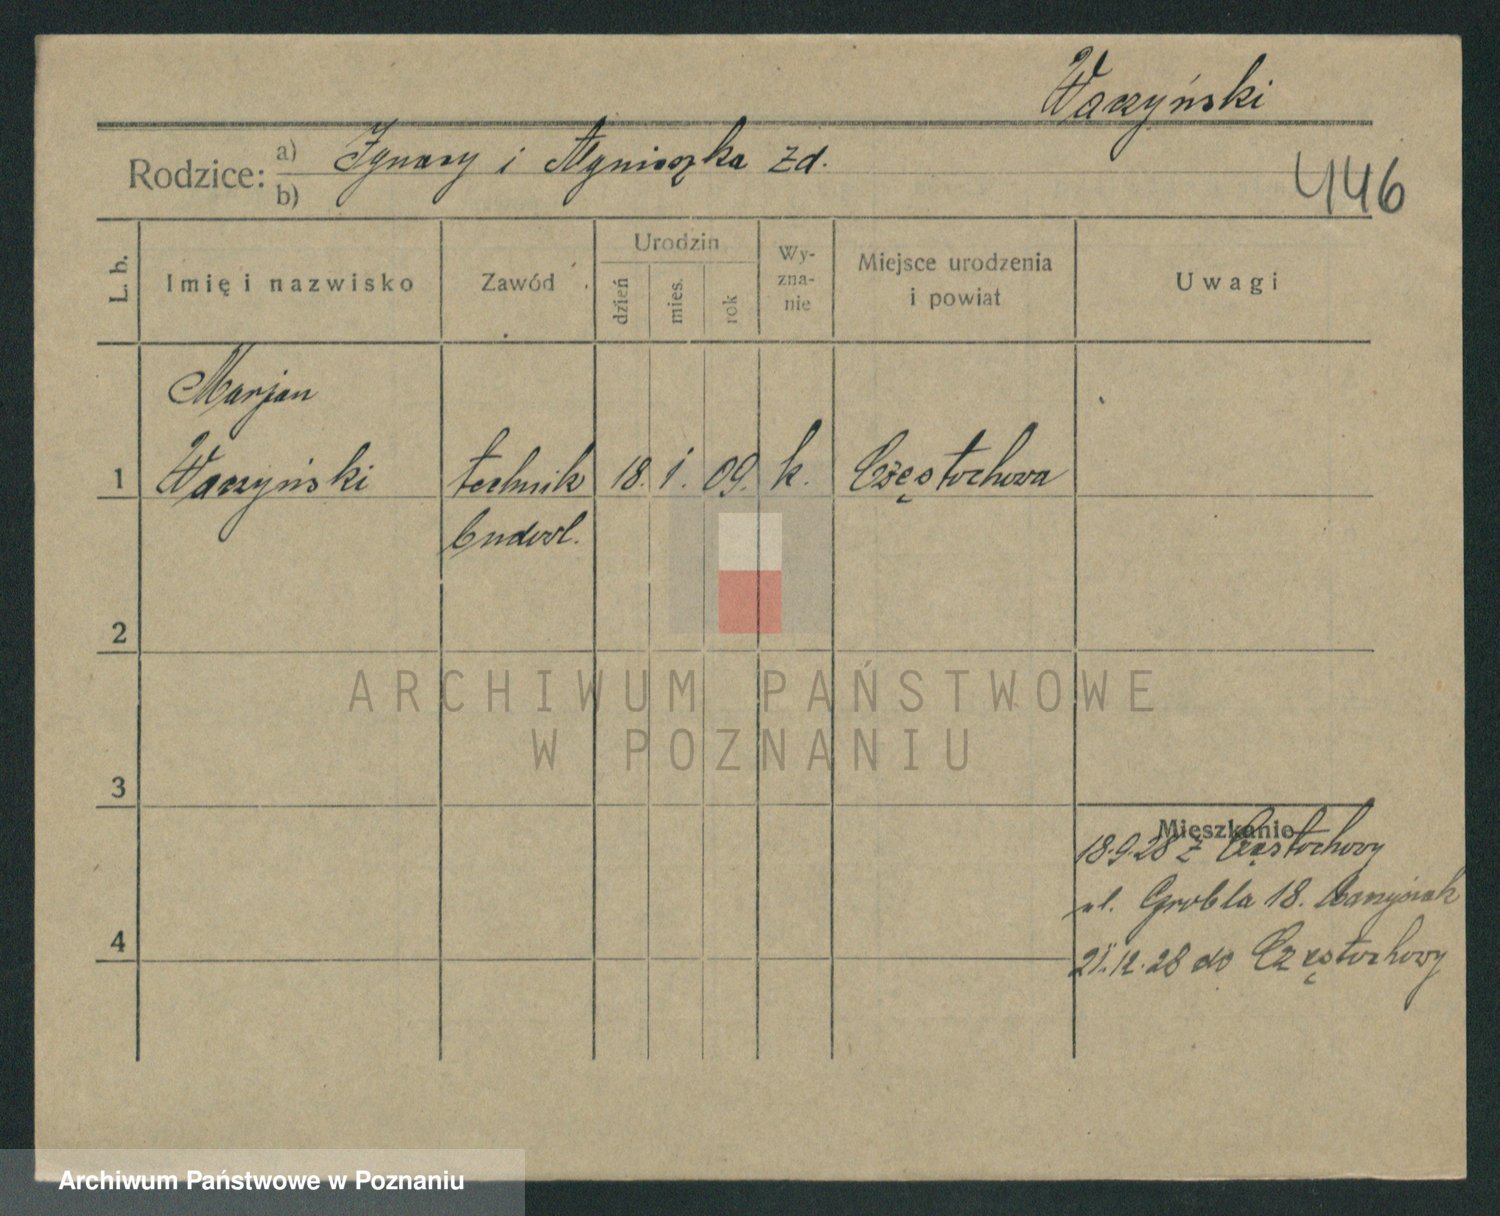 Wączyński
Rodzice: a) Ignacy i Agnieszka zd.
b)
446
L. b.
Imię i nazwisko
Zawód
Urodzin
dzień
mies.
rok
Wy-
zna-
nie
Miejsce urodzenia
i powiat
Uwagi
Marjan
1 Wączyński technik 18. 1. 09. k. Częstochowa
budowl.
2
ARCHIWUM PAŃSTWOWE
W POZNANIU
3
Mieszkanie
18.9.28 z Częstochowy
ul. Grobla 18.
4
21.12.28 do Częstochowy
Archiwum Państwowe w Poznaniu